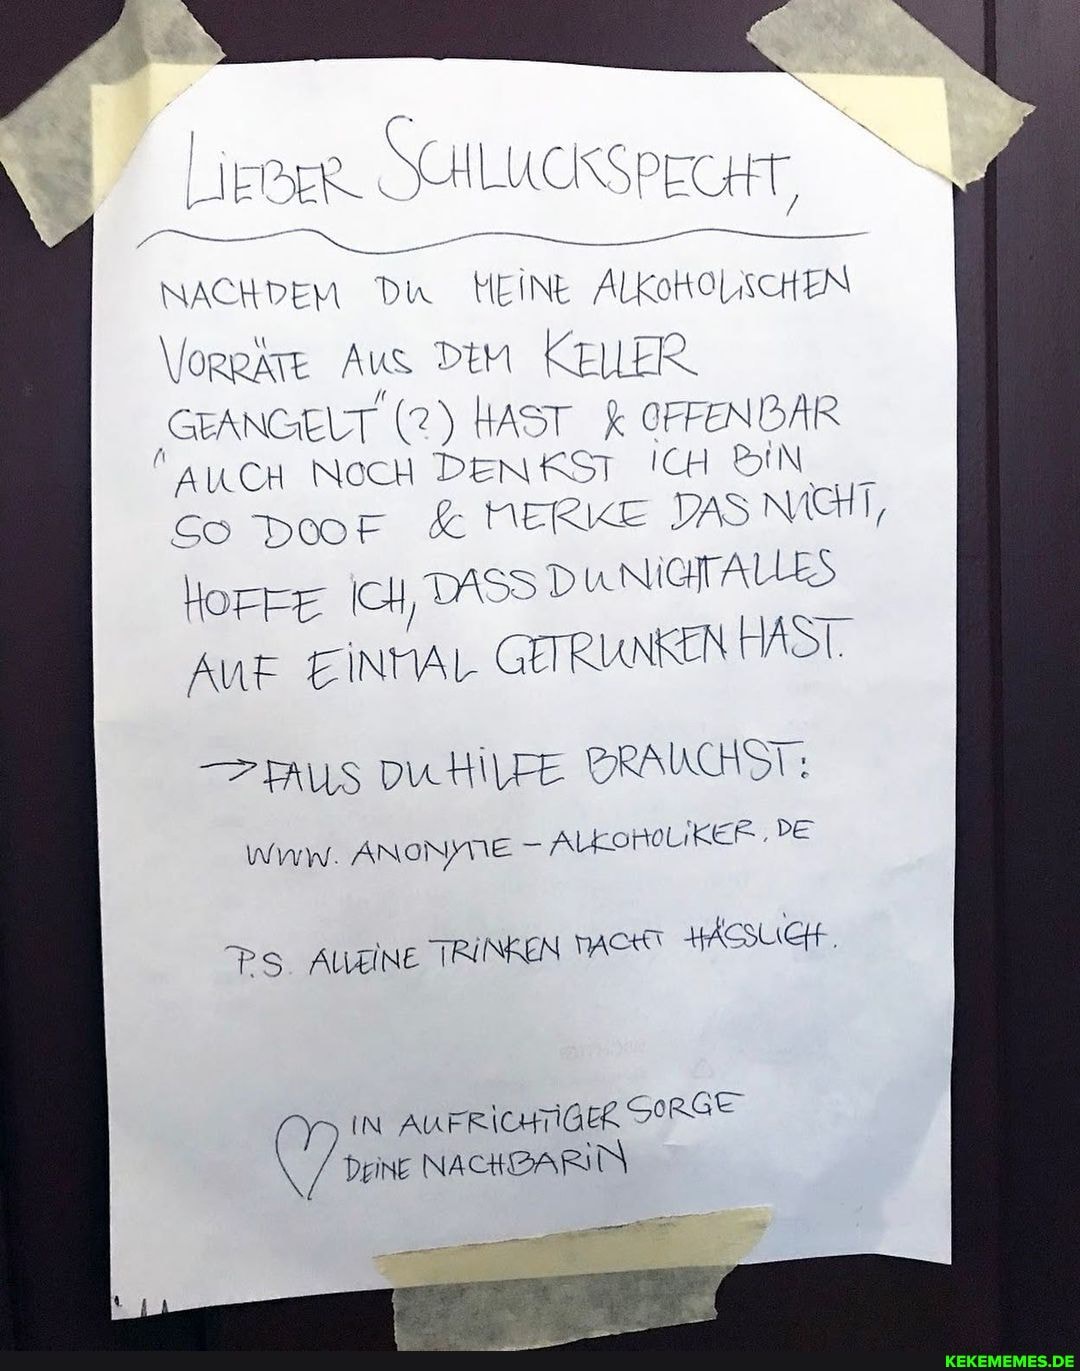 LIEBER SCHLUCKSPECHT,
NACHDEM DU MEINE ALKOHOLISCHEN
VORRÄTE AUS DEM KELLER
"GEANGELT" (?) HAST & OFFENBAR
AUCH NOCH DENKST ICH BIN
SO DOOF & MERKE DAS NICHT,
HOFFE ICH, DASS DU NICHT ALLES
AUF EINMAL GETRUNKEN HAST.
→ FALLS DU HILFE BRAUCHST:
WWW.ANONYME-ALKOHOLIKER.DE
P.S. ALLEINE TRINKEN MACHT HÄSSLICH.
♡ IN AUFRICHTIGER SORGE
DEINE NACHBARIN
KEKEMEMES.DE